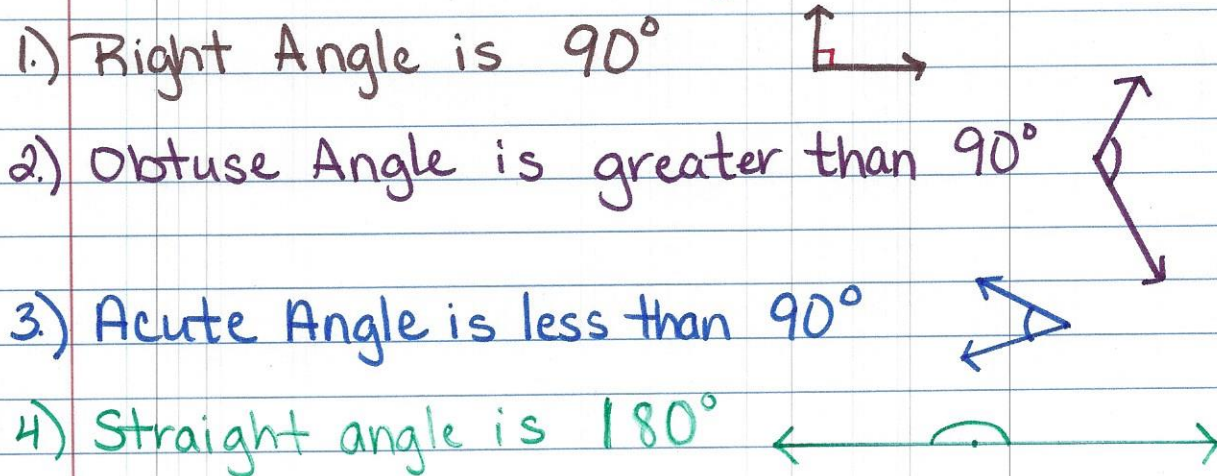 1.) Right Angle is 90°
2.) Obtuse Angle is greater than 90°
3.) Acute Angle is less than 90°
4) Straight angle is 180°